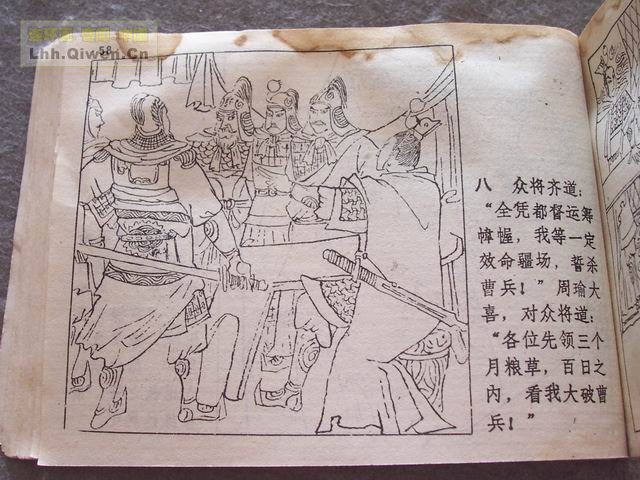 Lhh.Qiwen.Cn
58
八　众将齐道：
“全凭都督运筹
帷幄，我等一定
效命疆场，誓杀
曹兵！”周瑜大
喜，对众将道：
“各位先领三个
月粮草，百日之
内，看我大破曹
兵！”